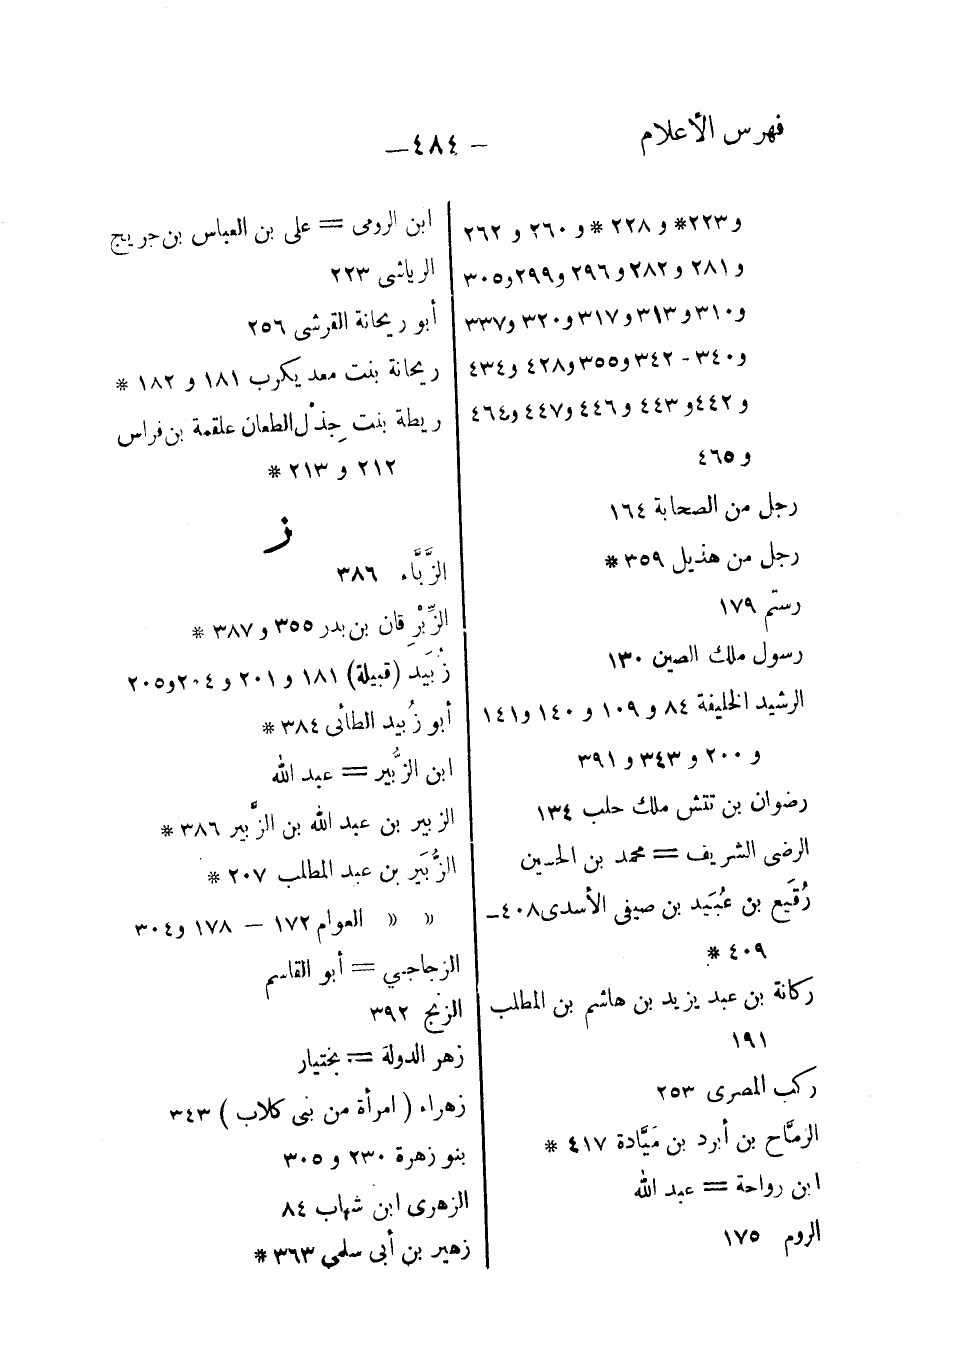 فهرس الأعلام
— ٤٨٤ —
و ٢٢٣* و ٢٢٨ * و ٢٦٠ و ٢٦٢
و ٢٨١ و ٢٨٢ و ٢٩٦ و ٢٩٩ و ٣٠٥
و ٣١٠ و ٣١٣ و ٣١٧ و ٣٢٠ و ٣٣٧
و ٣٤٠ - ٣٤٢ و ٣٥٥ و ٤٢٨ و ٤٣٤
و ٤٤٢ و ٤٤٣ و ٤٤٦ و ٤٤٧ و ٤٦٤
و ٤٦٥
رجل من الصحابة ١٦٤
رجل من هذيل ٣٥٩ *
رستم ١٧٩
رسول ملك الصين ١٣٠
الرشيد الخليفة ٨٤ و ١٠٩ و ١٤٠ و ١٤١
و ٢٠٠ و ٣٤٣ و ٣٩١
رضوان بن تتش ملك حلب ١٣٤
الرضى الشريف = محمد بن الحسين
رُقَيع بن عُبَيد بن صيفى الأسدى ٤٠٨ –
٤٠٩ *
ركانة بن عبد يزيد بن هاشم بن المطلب
١٩١
ركب المصرى ٢٥٣
الرمَّاح بن أبرد بن مَيَّادة ٤١٧ *
ابن رواحة = عبد الله
الروم ١٧٥
ابن الرومى = على بن العباس بن جريج
الرياشى ٢٢٣
أبو ريحانة القرشى ٢٥٦
ريحانة بنت معد يكرب ١٨١ و ١٨٢ *
ريطة بنت جِذْل الطعان علقمة بن فراس
٢١٢ و ٢١٣ *
ز
الزَّبَّاء ٣٨٦
الزِّبْرِقان بن بدر ٣٥٥ و ٣٨٧ *
زُبَيد (قبيلة) ١٨١ و ٢٠١ و ٢٠٤ و ٢٠٥
أبو زُبيد الطائى ٣٨٤ *
ابن الزُّبير = عبد الله
الزبير بن عبد الله بن الزَّبير ٣٨٦ *
الزُّبَير بن عبد المطلب ٢٠٧ *
» » العوام ١٧٢ — ١٧٨ و ٣٠٤
الزجاجى = أبو القاسم
الزنج ٣٩٢
زهر الدولة = بختيار
زهراء ( امرأة من بنى كلاب ) ٣٤٣
بنو زهرة ٢٣٠ و ٣٠٥
الزهرى ابن شهاب ٨٤
زهير بن أبى سلمى ٣٦٣ *